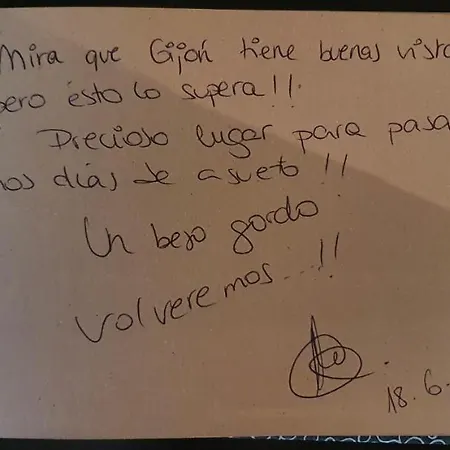 Mira que Gijón tiene buenas vista
pero ésto lo supera!!
Precioso lugar para pasa
nos días de asueto!!
Un beso gordo
volveremos...!!
18.6.